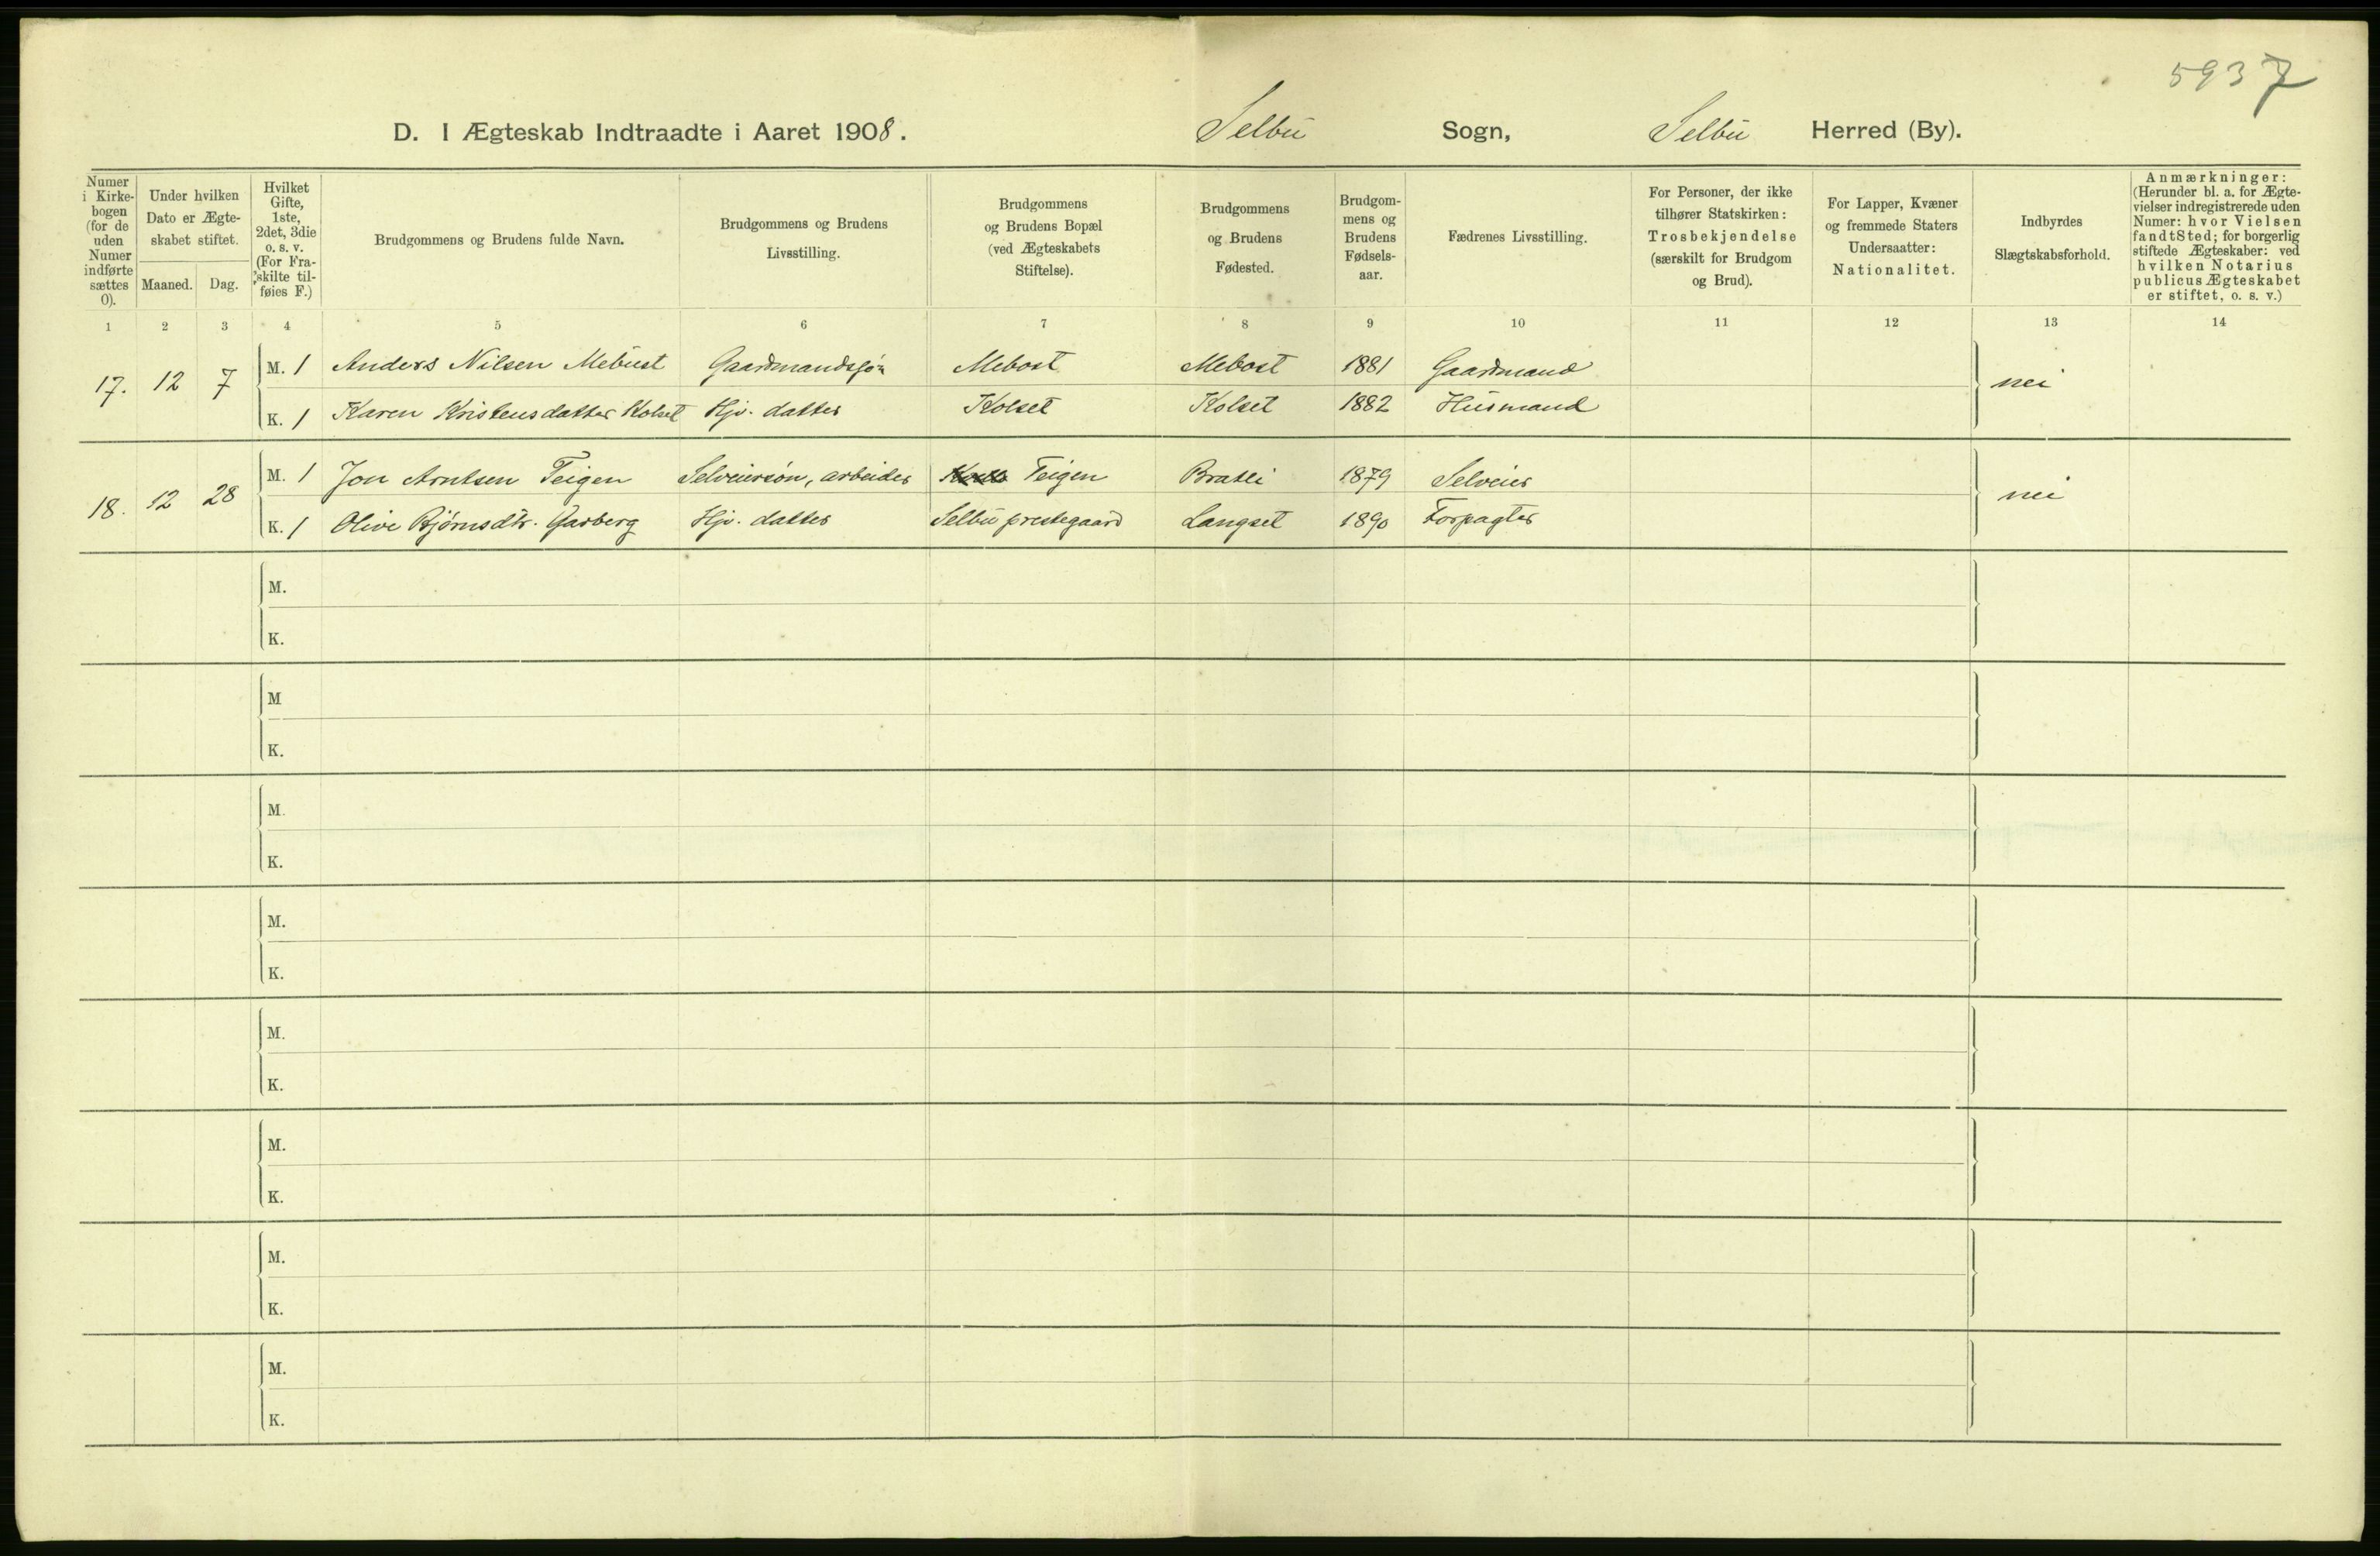 5937
D. I Ægteskab Indtraadte i Aaret 1908. Selbu Sogn, Selbu Herred (By).
Numer
i Kirke-
bogen
(for de
uden
Numer
indførte
sættes
0).
Under hvilken
Dato er Ægte-
skabet stiftet.
Maaned. Dag.
Hvilket
Gifte,
1ste,
2det, 3die
o. s. v.
(For Fra-
skilte til-
føies F.)
Brudgommens og Brudens fulde Navn.
Brudgommens og Brudens
Livsstilling.
Brudgommens
og Brudens Bopæl
(ved Ægteskabets
Stiftelse).
Brudgommens
og Brudens
Fødested.
Brudgom-
mens og
Brudens
Fødsels-
aar.
Fædrenes Livsstilling.
For Personer, der ikke
tilhører Statskirken:
Trosbekjendelse
(særskilt for Brudgom
og Brud).
For Lapper, Kvæner
og fremmede Staters
Undersaatter:
Nationalitet.
Indbyrdes
Slægtskabsforhold.
Anmærkninger:
(Herunder bl. a. for Ægte-
vielser indregistrerede uden
Numer: hvor Vielsen
fandt Sted; for borgerlig
stiftede Ægteskaber: ved
hvilken Notarius
publicus Ægteskabet
er stiftet, o. s. v.)
1 2 3 4 5 6 7 8 9 10 11 12 13 14
17. 12 7 M. 1 Anders Nilsen Mebust Gaardmandssøn Mebost Mebost 1881 Gaardmand nei
K. 1 Karen Kristensdatter Kolset Hjv. datter Kolset Kolset 1882 Husmand
18. 12 28 M. 1 Jon Arntsen Teigen Selveiersøn, arbeider Teigen Bratli 1879 Selveier nei
K. 1 Olive Bjørnsdtr. Garberg Hjv. datter Selbu prestegaard Langset 1890 Forpagter
M.
K.
M
K.
M.
K.
M.
K.
M.
K.
M.
K.
M.
K.
M.
K.